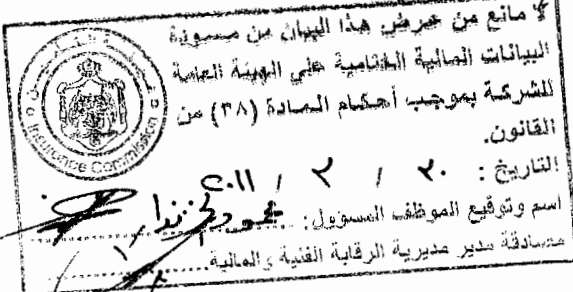 لا مانع من عرض هذا البيان من مسودة
البيانات المالية الختامية على الهيئة العامة
للشركة بموجب أحكام المادة (٣٨) من
القانون.
التاريخ : ٣٠ / ٣ / ٢٠١١
اسم وتوقيع الموظف المسؤول:
مصادقة مدير مديرية الرقابة الفنية والمالية
Insurance Commission